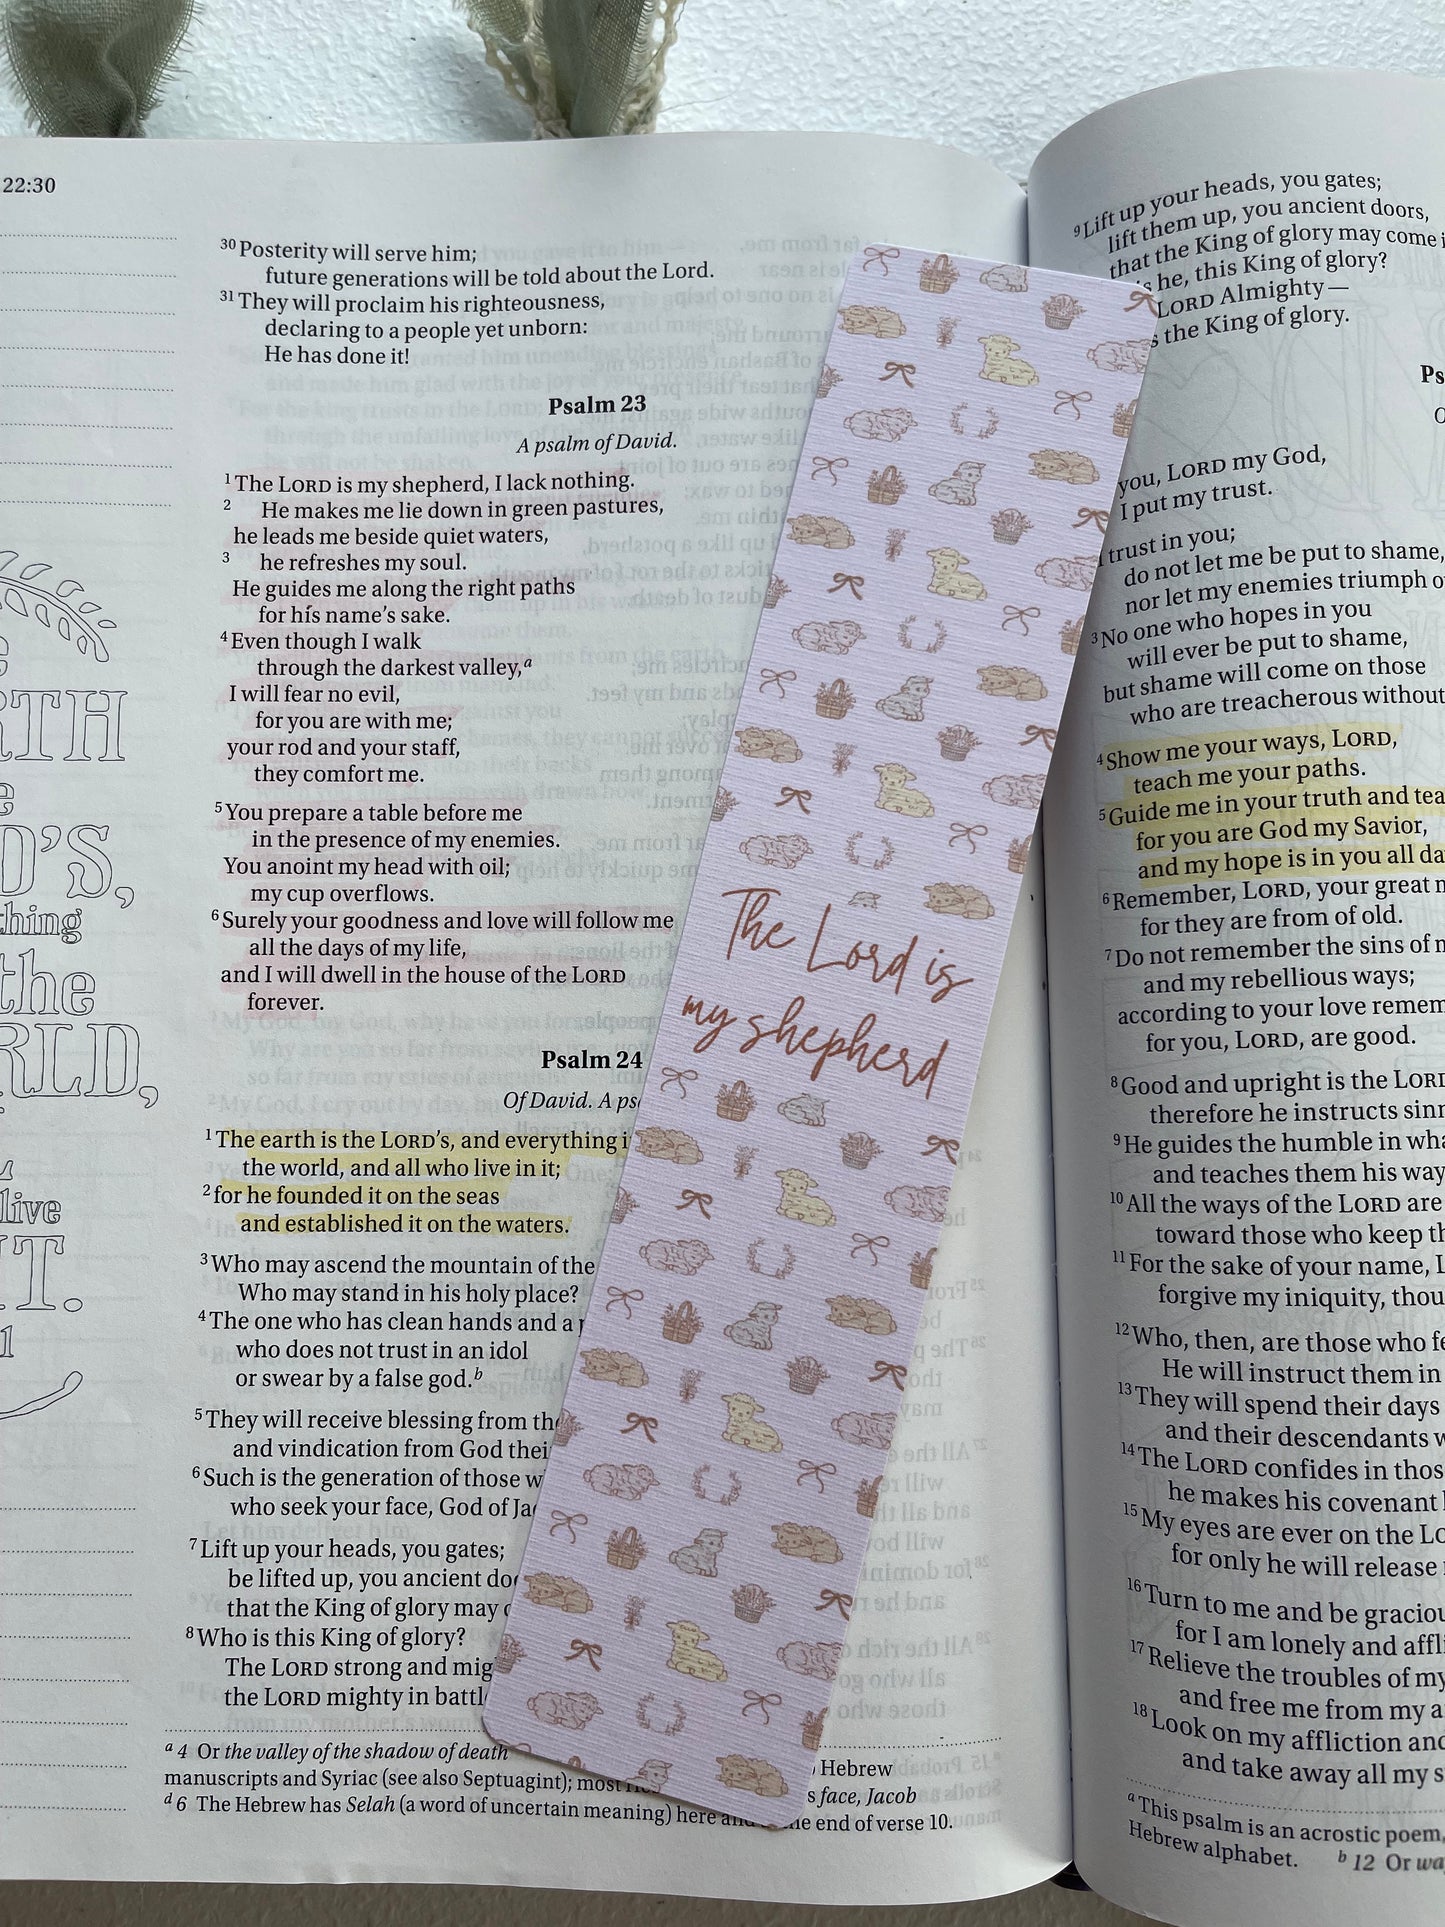 22:30
30 Posterity will serve him;
future generations will be told about the Lord.
31 They will proclaim his righteousness,
declaring to a people yet unborn:
He has done it!
Psalm 23
A psalm of David.
1 The LORD is my shepherd, I lack nothing.
2 He makes me lie down in green pastures,
he leads me beside quiet waters,
3 he refreshes my soul.
He guides me along the right paths
for his name’s sake.
4 Even though I walk
through the darkest valley,a
I will fear no evil,
for you are with me;
your rod and your staff,
they comfort me.
5 You prepare a table before me
in the presence of my enemies.
You anoint my head with oil;
my cup overflows.
6 Surely your goodness and love will follow me
all the days of my life,
and I will dwell in the house of the LORD
forever.
Psalm 24
Of David. A
1 The earth is the LORD’s, and everything
the world, and all who live in it;
2 for he founded it on the seas
and established it on the waters.
3 Who may ascend the mountain of the
Who may stand in his holy place?
4 The one who has clean hands and a
who does not trust in an idol
or swear by a false god.b
5 They will receive blessing from
and vindication from God
6 Such is the generation of those
who seek your face, God of
7 Lift up your heads, you gates;
be lifted up, you ancient
that the King of glory may
8 Who is this King of glory?
The LORD strong and
the LORD mighty in
a 4 Or the valley of the shadow of death
Hebrew
manuscripts and Syriac (see also Septuagint); most
face, Jacob
d 6 The Hebrew has Selah (a word of uncertain meaning) here
end of verse 10.
The Lord is
my shepherd
the
live
9 Lift up your heads, you gates;
lift them up, you ancient doors,
that the King of glory may come
he, this King of glory?
LORD Almighty—
the King of glory.
you, LORD my God,
I put my trust.
trust in you;
do not let me be put to shame,
nor let my enemies triumph
3 No one who hopes in you
will ever be put to shame,
but shame will come on those
who are treacherous without
4 Show me your ways, LORD,
teach me your paths.
5 Guide me in your truth and
for you are God my Savior,
and my hope is in you all
6 Remember, LORD, your great
for they are from of old.
7 Do not remember the sins of
and my rebellious ways;
according to your love
for you, LORD, are good.
8 Good and upright is the LORD
therefore he instructs
9 He guides the humble in
and teaches them his
10 All the ways of the LORD are
toward those who keep
11 For the sake of your name,
forgive my iniquity,
12 Who, then, are those who
He will instruct them in
13 They will spend their days
and their descendants
14 The LORD confides in
he makes his covenant
15 My eyes are ever on the
for only he will release
16 Turn to me and be
for I am lonely and
17 Relieve the troubles of my
and free me from my
18 Look on my affliction
and take away all my
a This psalm is an acrostic poem,
Hebrew alphabet. b 12 Or